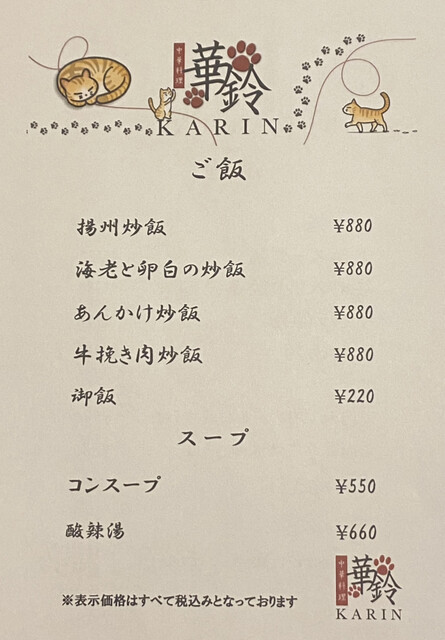 中華料理
華鈴
KARIN
ご飯
揚州炒飯 ¥880
海老と卵白の炒飯 ¥880
あんかけ炒飯 ¥880
牛挽き肉炒飯 ¥880
御飯 ¥220
スープ
コンスープ ¥550
酸辣湯 ¥660
中華料理
華鈴
KARIN
※表示価格はすべて税込みとなっております